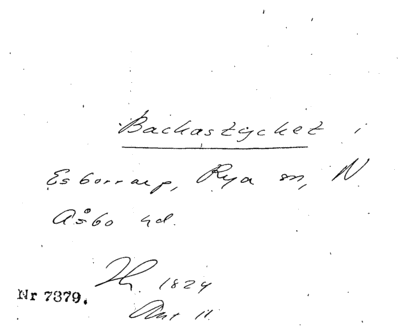 Backastycket i
Esborrarp, Rya sn, N
Åsbo hd.
Th. 1824
Nr 7379.
Akt 11